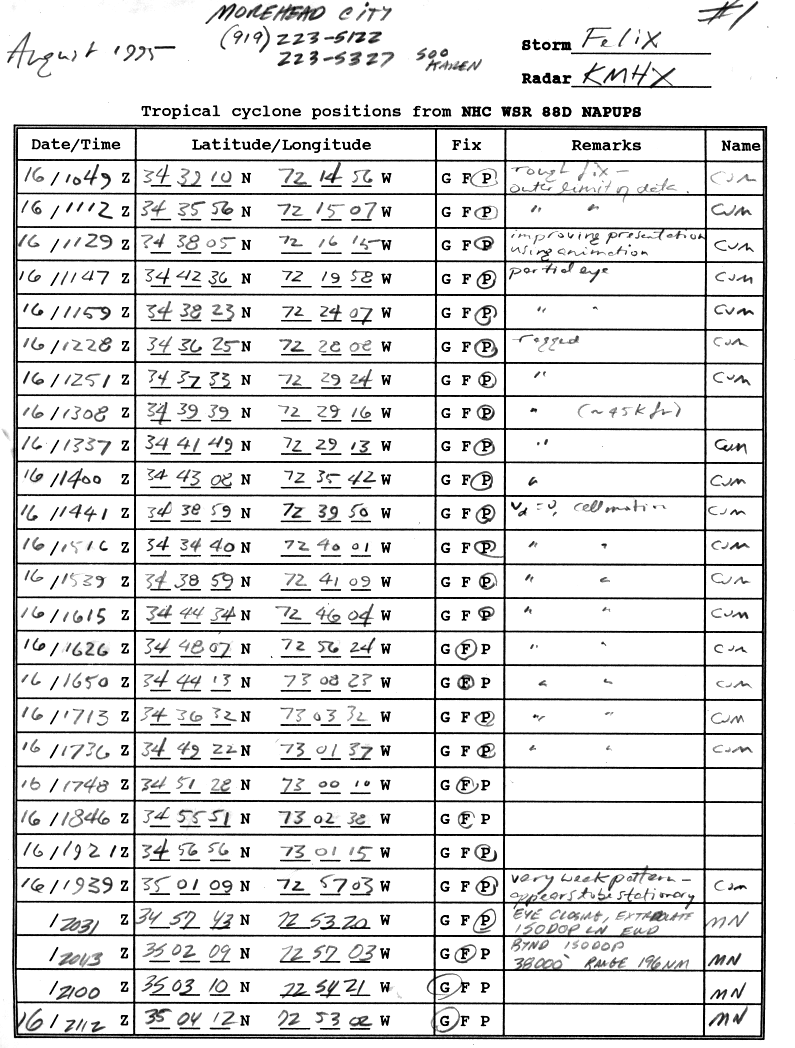 MOREHEAD CITY #1
August 1995 (919) 223-5122 Storm Felix
223-5327 500 KAREN Radar KMHX
Tropical cyclone positions from NHC WSR 88D NAPUPS
Date/Time Latitude/Longitude Fix Remarks Name
16/1049 Z 34 39 10 N 72 14 56 W G F P rough fix - outer limit of data. CJM
16/1112 Z 34 35 56 N 72 15 07 W G F P " " CJM
16/1129 Z 34 38 05 N 72 16 15 W G F P improving presentation using animation CJM
16/1147 Z 34 42 36 N 72 19 58 W G F P partial eye CJM
16/1159 Z 34 38 23 N 72 24 07 W G F P " " CJM
16/1228 Z 34 36 25 N 72 28 08 W G F P ragged CJM
16/1251 Z 34 37 33 N 72 29 24 W G F P " CJM
16/1308 Z 34 39 39 N 72 29 16 W G F P " (~45K ft)
16/1337 Z 34 41 49 N 72 29 13 W G F P " CJM
16/1400 Z 34 43 08 N 72 35 42 W G F P " CJM
16/1441 Z 34 38 59 N 72 39 50 W G F P cell motion CJM
16/1516 Z 34 34 40 N 72 40 01 W G F P " " CJM
16/1539 Z 34 38 59 N 72 41 09 W G F P " " CJM
16/1615 Z 34 44 34 N 72 46 04 W G F P " " CJM
16/1626 Z 34 48 07 N 72 56 24 W G F P " " CJM
16/1650 Z 34 44 13 N 73 08 23 W G F P " " CJM
16/1713 Z 34 36 32 N 73 03 32 W G F P " " CJM
16/1736 Z 34 49 22 N 73 01 37 W G F P " " CJM
16/1748 Z 34 51 28 N 73 00 10 W G F P
16/1846 Z 34 55 51 N 73 02 38 W G F P
16/1921 Z 34 56 56 N 73 01 15 W G F P
16/1939 Z 35 01 09 N 72 57 03 W G F P very weak pattern - appears to be stationary CJM
/2031 Z 34 57 43 N 72 53 20 W G F P EYE CLOSING, EXTRAPOLATE 150DOP LN END MN
/2043 Z 35 02 09 N 72 57 03 W G F P BYND 150DOP 38000' RANGE 196NM MN
/2100 Z 35 03 10 N 72 54 21 W G F P MN
16/2112 Z 35 04 12 N 72 53 02 W G F P MN